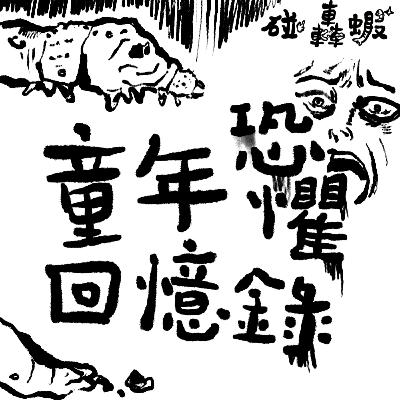 碰轟蝦
童年恐懼
回憶錄